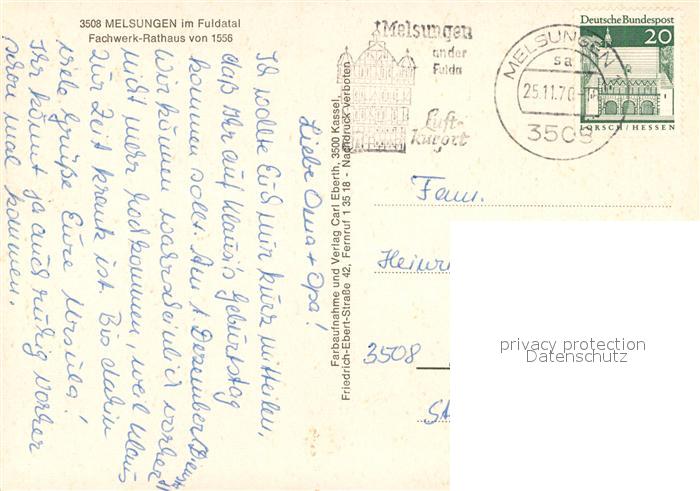 3508 MELSUNGEN im Fuldatal
Fachwerk-Rathaus von 1556
Liebe Oma + Opa!
Ich wollte Euch nur kurz mitteilen,
daß Ihr auf Klaus's Geburtstag
kommen sollt. Am 1 Dezember
wir können warscheinlich vorher
nicht mehr kommen, weil Klaus
zur Zeit krank ist. Bis dahin
viele Grüße Eure Ursula!
Ihr könnt ja auch ruhig vorher
schon mal kommen.
Farbaufnahme und Verlag Carl Eberth, 3500 Kassel,
Friedrich-Ebert-Straße 42, Fernruf 1 35 18 - Nachdruck verboten
Melsungen
an der
Fulda
Luft-
kurort
MELSUNGEN
sa
25.11.70
3508
Deutsche Bundespost
20
LORSCH/HESSEN
Fam.
Heinr
3508
privacy protection
Datenschutz